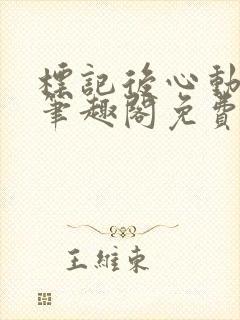 標記後心動
筆趣閣免費
王維東